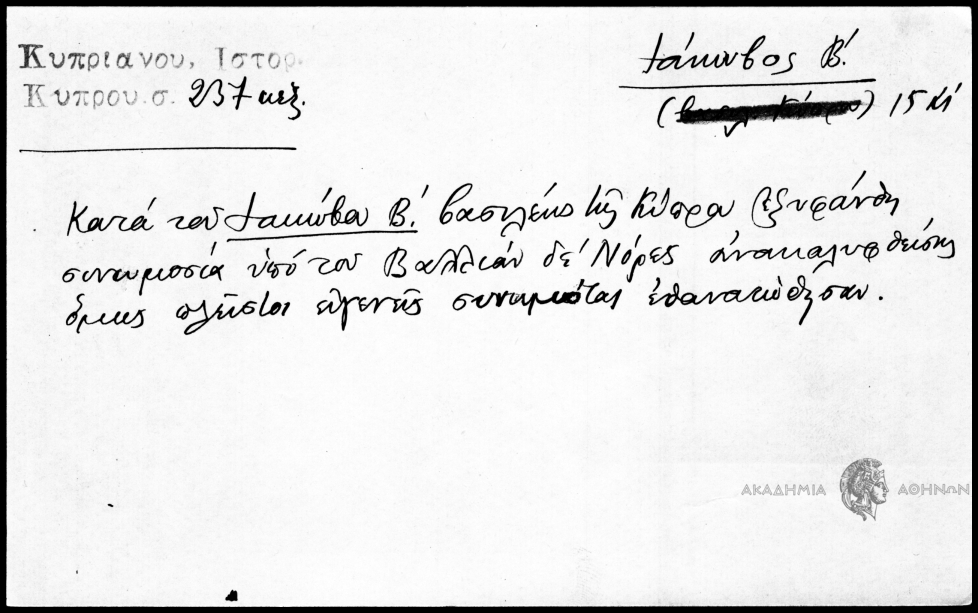 Κυπριανου, Ιστορ.
Κυπρου σ. 237 κεξ.
Ιάκωβος Β΄.
15 ΚΙ
Κατά του Ιακώβου Β΄. βασιλέως της Κύπρου εξυφάνθη
συνωμοσία ὑπό του Βαλλιάν δέ Νόρες ἀνακαλυφθείσης
ὅμως πλεῖστοι εὐγενεῖς συνωμόται ἐθανατώθησαν.
ΑΚΑΔΗΜΙΑ ΑΘΗΝΩΝ